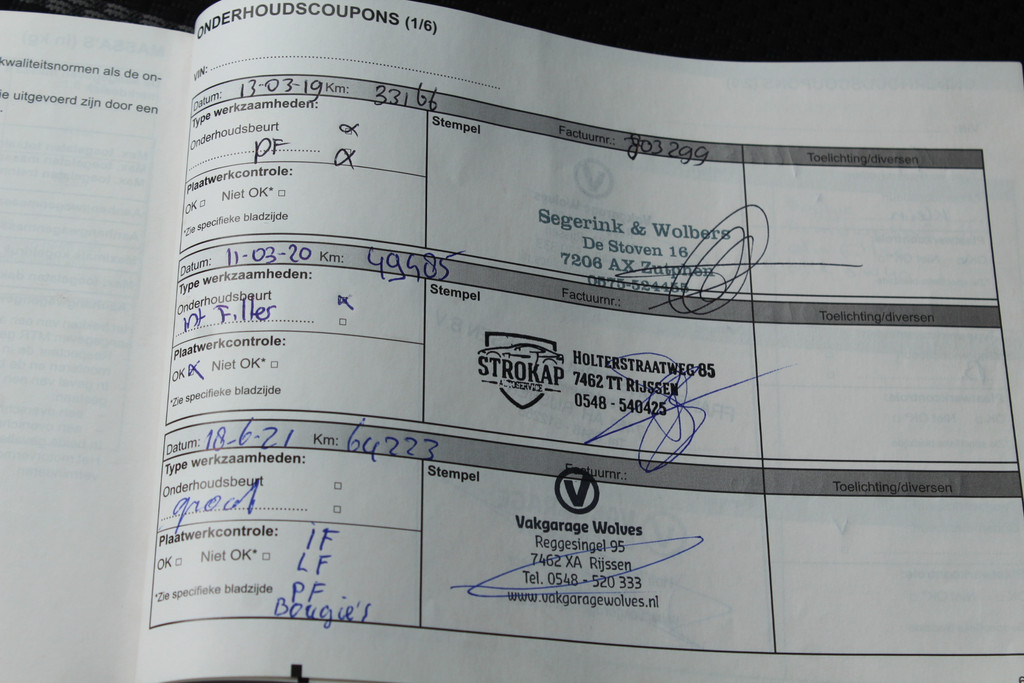 kwaliteitsnormen als de on-
ie uitgevoerd zijn door een
ONDERHOUDSCOUPONS (1/6)
VIN:
Datum: 13-03-19 Km: 33166
Type werkzaamheden:
Onderhoudsbeurt
PF
Plaatwerkcontrole:
OK □ Niet OK* □
*Zie specifieke bladzijde
Stempel Factuurnr.: 803299
Segerink & Wolbers
De Stoven 16
7206 AX Zutphen
0575-524455
Toelichting/diversen
Datum: 11-03-20 Km: 49485
Type werkzaamheden:
Onderhoudsbeurt
int Filter
Plaatwerkcontrole:
OK Niet OK* □
*Zie specifieke bladzijde
Stempel Factuurnr.:
STROKAP
AUTOSERVICE
HOLTERSTRAATWEG 85
7462 TT RIJSSEN
0548 - 540425
Toelichting/diversen
Datum: 18-6-21 Km: 64223
Type werkzaamheden:
Onderhoudsbeurt □
groot □
Plaatwerkcontrole:
OK □ Niet OK* □
*Zie specifieke bladzijde
IF
LF
PF
Bougie's
Stempel Factuurnr.:
V
Vakgarage Wolves
Reggesingel 95
7462 XA Rijssen
Tel. 0548 - 520 333
www.vakgaragewolves.nl
Toelichting/diversen